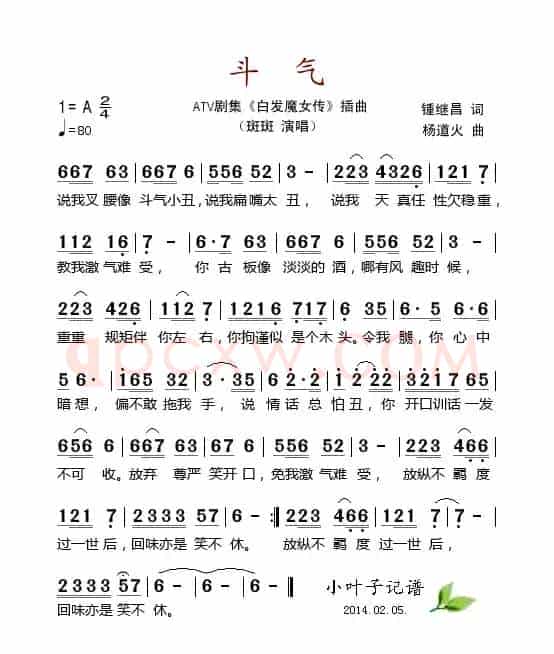 斗 气
1= A 2/4
ATV剧集《白发魔女传》插曲
锺继昌 词
♩=80
(斑斑 演唱)
杨道火 曲
667 63 | 667 6 | 556 52 | 3 - | 223 4326 | 121 7 |
说我叉腰像 斗气小丑,说我扁嘴太 丑, 说我 天 真任 性欠稳重,
112 16 | 7 - | 6·7 63 | 667 6 | 556 52 | 3 - |
教我激气难 受, 你 古 板像 淡淡的 酒,哪有风 趣时 候,
223 426 | 112 7 | 1216 717 | 6 - | 6·5 6·6 |
重重 规矩伴 你左 右,你拘谨似 是个木 头。令我 腿, 你 心中
5 6· | 165 32 | 3 - | 6 2·2 | 1 222 | 3217 65 |
暗想, 偏不敢 拖我 手, 说 情话 总 怕丑,你 开口训话 一发
656 6 | 667 63 | 667 6 | 556 52 | 3 - | 223 466 |
不可 收。放弃 尊严 笑开口,免我激 气难 受, 放纵不 羁 度
121 7 | 2333 57 | 6 - :| 223 466 | 121 7 | 7 - |
过一世 后,回味亦是 笑不 休。 放纵不 羁 度 过一世 后,
2333 57 | 6 - | 6 - | 6 - ‖
回味亦是 笑不 休。
小叶子记谱
2014.02.05.
qpcxw.com